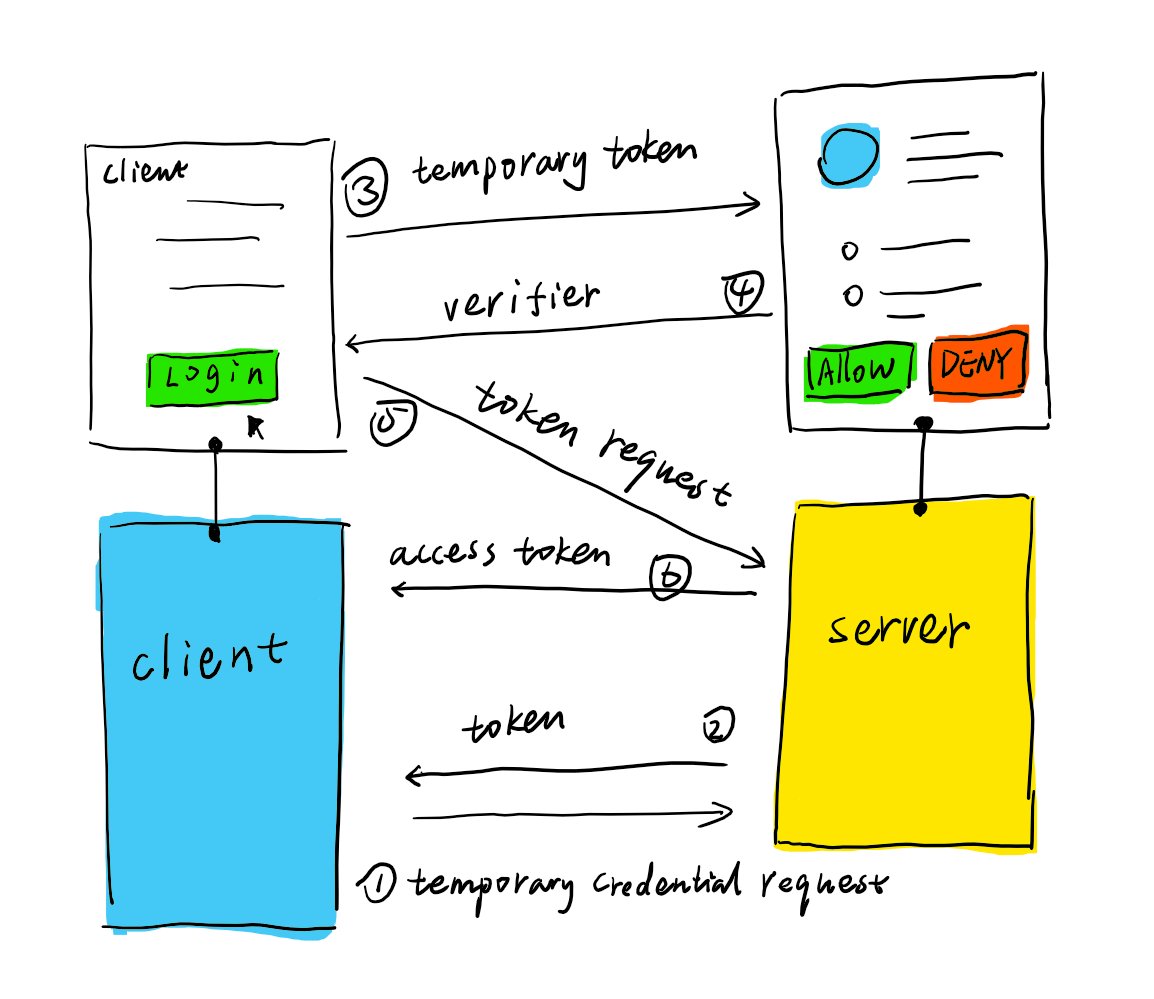 client
Login
③ temporary token
verifier ④
Allow
DENY
⑤ token request
access token ⑥
client
server
token ②
① temporary credential request